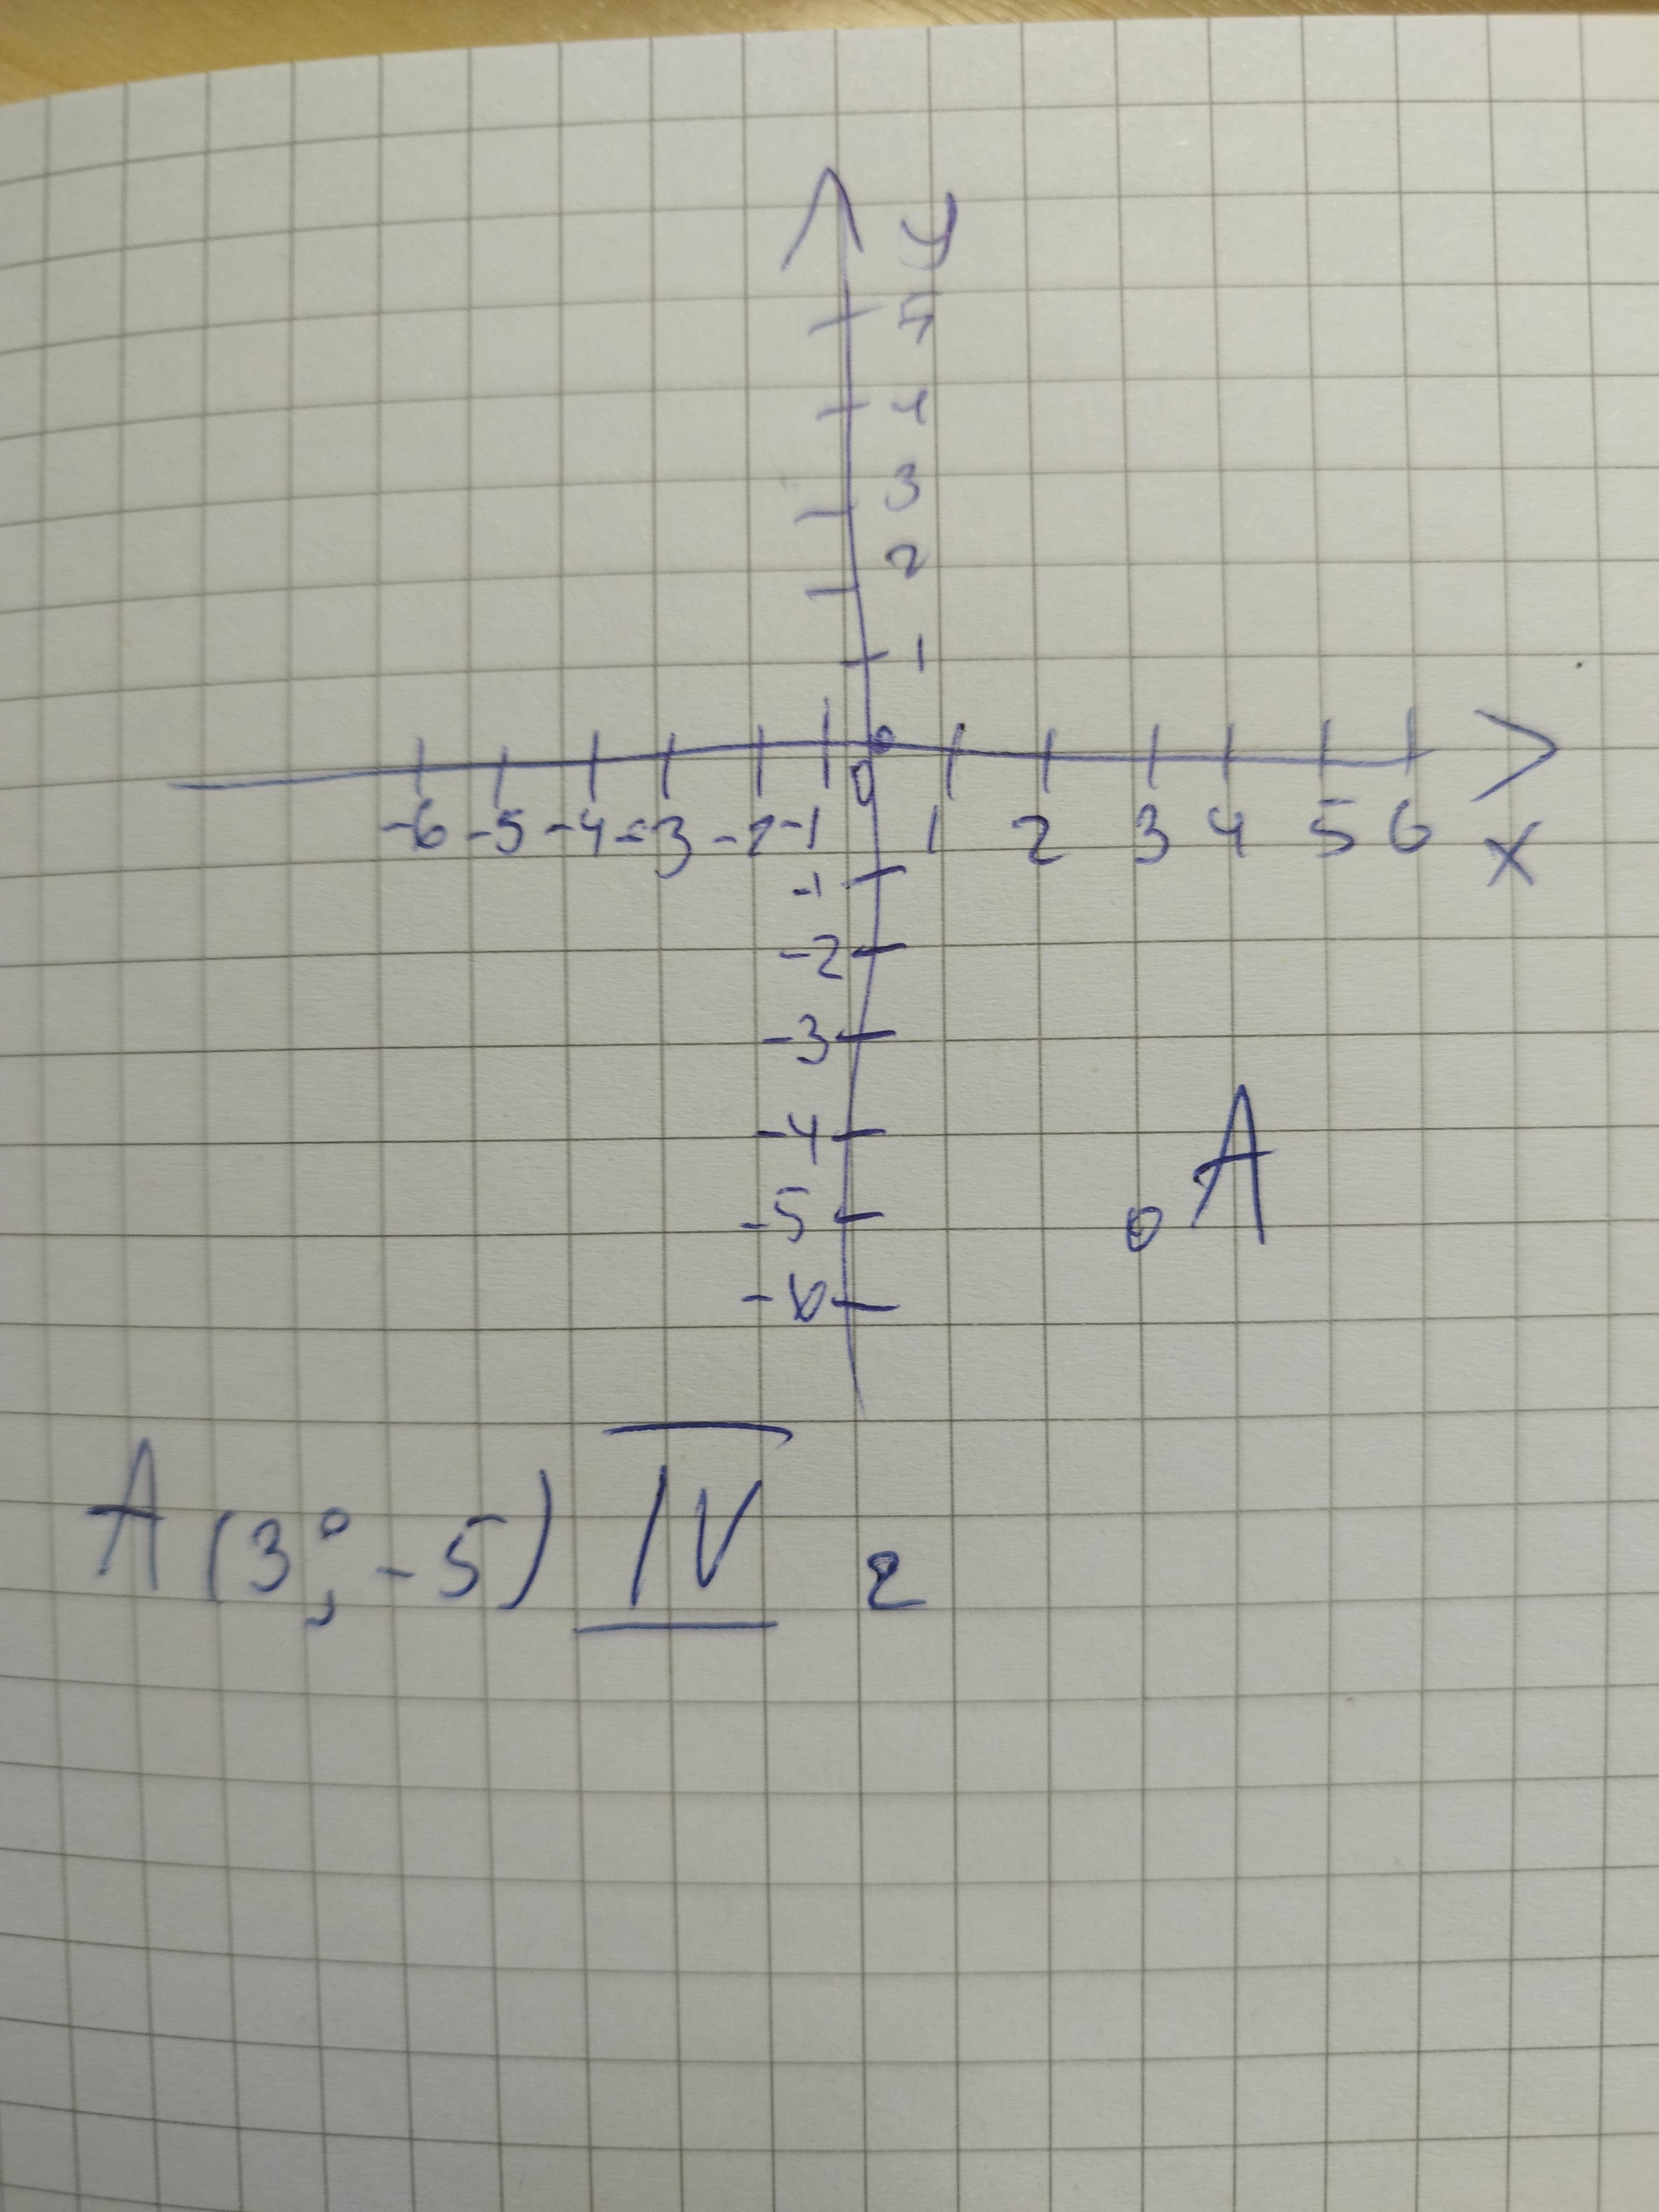 y
5
4
3
2
1
0
-6 -5 -4 -3 -2 -1 1 2 3 4 5 6 x
-1
-2
-3
-4
A
-5
-6
A (3; -5) IV 2